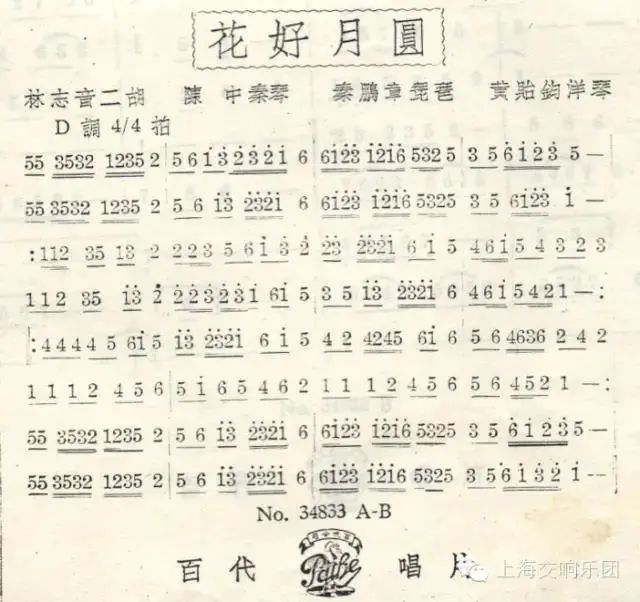 花好月圓
林志音二胡 陳中秦琴 秦鵬章琵琶 黄貽鈞洋琴
D 調 4/4 拍
55 3532 1235 2 | 5 6 i̇3̇ 2̇3̇2̇i̇ 6 | 6i̇2̇3̇ i̇2̇i̇6 5325 | 3 5 6i̇2̇3̇ 5 —
55 3532 1235 2 | 5 6 i̇3̇ 2̇3̇2̇i̇ 6 | 6i̇2̇3̇ i̇2̇i̇6 5325 | 3 5 6i̇2̇3̇ i̇ —
:112 35 i̇3̇ 2̇ | 2̇2̇3̇ 5 6i̇3̇2̇ | 2̇3̇ 2̇3̇2̇i̇ 6i̇5 | 46i̇5 4323
112 35 i̇3̇ 2̇ | 2̇2̇3̇2̇3̇i̇ 6i̇5 | 35 i̇3̇ 2̇3̇2̇i̇ 6 | 46i̇5421 — :
:44445 6i̇5 | i̇3̇ 2̇3̇2̇i̇ 6i̇5 | 42 4245 6i̇6 | 56 4636 242
1112 456 | 5i̇65462 | 1112456 | 56 4521 — :
55 3532 1235 2 | 5 6 i̇3̇ 2̇3̇2̇i̇ 6 | 6i̇2̇3̇ i̇2̇i̇6 5325 | 3 5 6i̇2̇3̇ 5 —
55 3532 1235 2 | 5 6 i̇3̇ 2̇3̇2̇i̇ 6 | 6i̇2̇3̇ i̇2̇i̇6 5325 | 3 5 6i̇3̇2̇ i̇ —
No. 34833 A-B
百代 Pathe 唱片
上海交响乐团